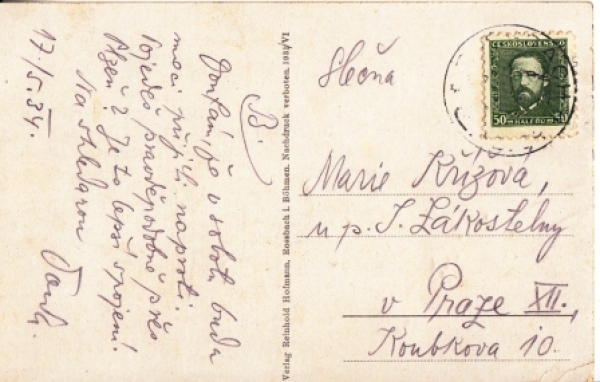 17./5.34.
B.
Doufám, že v sobotu budu
moci přijít naproti.
Pojedeš pravděpodobně přes
Plzeň? Je to lepší spojení.
Na shledanou
Verlag Reinhold Hofmann, Rossbach i. Böhmen. Nachdruck verboten. 1931/VI
ČESKOSLOVENSKO
50 HALÉŘŮ 50
Slečna
Marie Křížová,
u p. J. Zákostelny
v Praze XII.,
Koubkova 10.